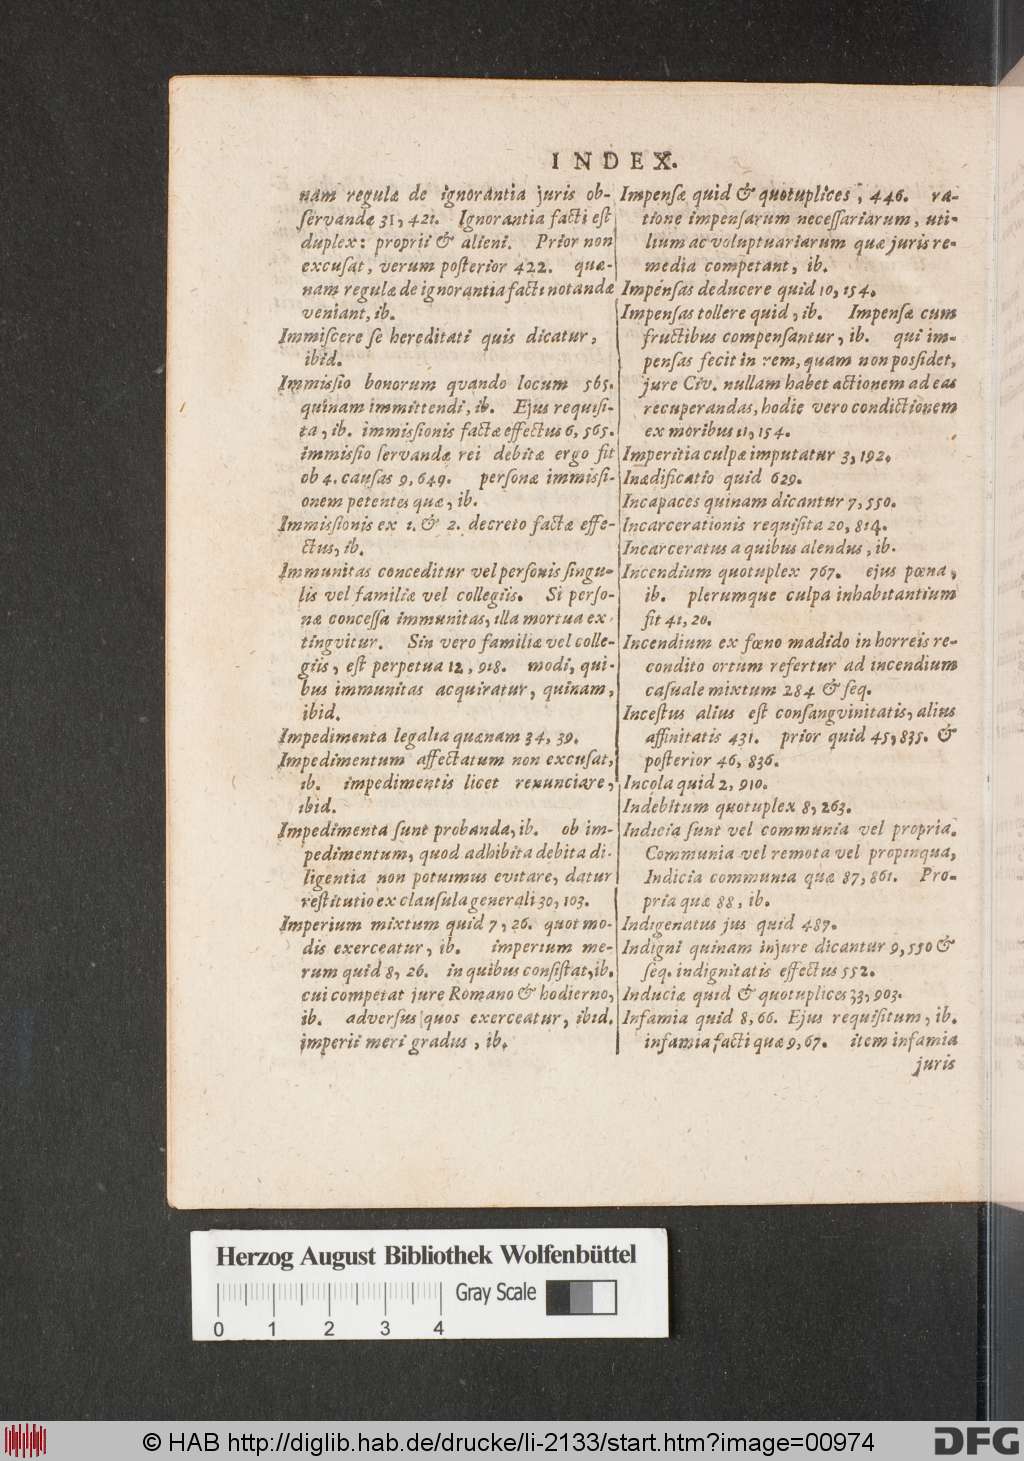 INDEX.
nam regulæ de ignorantia juris ob-
ſervandæ 31, 421. Ignorantia facti eſt
duplex: proprii & alieni. Prior non
excuſat, verum poſterior 422. quæ-
nam regulæ de ignorantia facti notandæ
veniant, ib.
Immiſcere ſe hereditati quis dicatur,
ibid.
Immiſsio bonorum qvando locum 565.
quinam immittendi, ib. Ejus requiſi-
ta, ib. immiſsionis factæ effectus 6, 565.
immiſsio ſervandæ rei debitæ ergo fit
ob 4. cauſas 9, 649. perſonæ immiſsi-
onem petentes quæ, ib.
Immiſsionis ex 1. & 2. decreto factæ effe-
ctus, ib.
Immunitas conceditur vel perſonis ſingu-
lis vel familiæ vel collegiis. Si perſo-
næ conceſſa immunitas, illa mortua ex-
tingvitur. Sin vero familiæ vel colle-
giis, eſt perpetua 12, 918. modi, qui-
bus immunitas acquiratur, quinam,
ibid.
Impedimenta legalia quænam 34, 39.
Impedimentum affectatum non excuſat,
ib. impedimentis licet renunciare,
ibid.
Impedimenta ſunt probanda, ib. ob im-
pedimentum, quod adhibita debita di-
ligentia non potuimus evitare, datur
reſtitutio ex clauſula generali 30, 103.
Imperium mixtum quid 7, 26. quot mo-
dis exerceatur, ib. imperium me-
rum quid 8, 26. in quibus conſiſtat, ib.
cui competat jure Romano & hodierno,
ib. adverſus quos exerceatur, ibid.
imperii meri gradus, ib.
Impenſæ quid & quotuplices, 446. ra-
tione impenſarum neceſſariarum, uti-
lium ac voluptuariarum quæ juris re-
media competant, ib.
Impenſas deducere quid 10, 154.
Impenſas tollere quid, ib. Impenſæ cum
fructibus compenſantur, ib. qui im-
penſas fecit in rem, quam non poſsidet,
jure Civ. nullam habet actionem ad eas
recuperandas, hodie vero condictionem
ex moribus 11, 154.
Imperitia culpæ imputatur 3, 192.
Inædificatio quid 629.
Incapaces quinam dicantur 7, 550.
Incarcerationis requiſita 20, 814.
Incarceratus a quibus alendus, ib.
Incendium quotuplex 767. ejus pœna,
ib. plerumque culpa inhabitantium
fit 41, 20.
Incendium ex fœno madido in horreis re-
condito ortum refertur ad incendium
caſuale mixtum 284 & ſeq.
Inceſtus alius eſt conſangvinitatis, alius
affinitatis 431. prior quid 45, 835. &
poſterior 46, 836.
Incola quid 2, 910.
Indebitum quotuplex 8, 263.
Indicia ſunt vel communia vel propria.
Communia vel remota vel propinqua,
Indicia communia quæ 87, 861. Pro-
pria quæ 88, ib.
Indigenatus jus quid 487.
Indigni quinam in jure dicantur 9, 550 &
ſeq. indignitatis effectus 552.
Induciæ quid & quotuplices 33, 903.
Infamia quid 8, 66. Ejus requiſitum, ib.
infamia facti quæ 9, 67. item infamia
juris
Herzog August Bibliothek Wolfenbüttel
Gray Scale
0 1 2 3 4
© HAB http://diglib.hab.de/drucke/li-2133/start.htm?image=00974
DFG